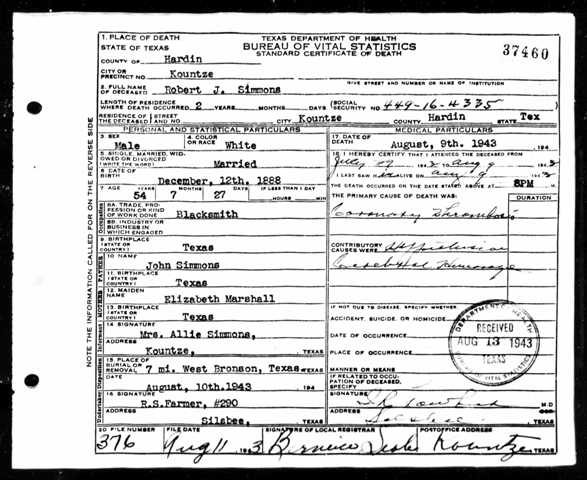 NOTE THE INFORMATION CALLED FOR ON THE REVERSE SIDE
1. PLACE OF DEATH
STATE OF TEXAS
TEXAS DEPARTMENT OF HEALTH
BUREAU OF VITAL STATISTICS
STANDARD CERTIFICATE OF DEATH
37460
COUNTY OF Hardin
CITY OR PRECINCT NO. Kountze
GIVE STREET AND NUMBER OR NAME OF INSTITUTION
2. FULL NAME OF DECEASED Robert J. Simmons
LENGTH OF RESIDENCE WHERE DEATH OCCURRED 2 YEARS MONTHS DAYS (SOCIAL SECURITY NO. 449-16-4335
RESIDENCE OF THE DECEASED STREET AND NO. CITY Kountze COUNTY Hardin STATE Tex
PERSONAL AND STATISTICAL PARTICULARS
3. SEX Male
4. COLOR OR RACE White
5. SINGLE, MARRIED, WIDOWED OR DIVORCED (WRITE THE WORD) Married
6. DATE OF BIRTH December, 12th. 1888
7. AGE 54 YEARS 7 MONTHS 27 DAYS IF LESS THAN 1 DAY HOURS MIN
Occupation
8A. TRADE, PROFESSION OR KIND OF WORK DONE Blacksmith
8B. INDUSTRY OR BUSINESS IN WHICH ENGAGED
9. BIRTHPLACE (STATE OR COUNTRY) Texas
FATHER
10. NAME John Simmons
11. BIRTHPLACE (STATE OR COUNTRY) Texas
MOTHER
12. MAIDEN NAME Elizabeth Marshall
13. BIRTHPLACE (STATE OR COUNTRY) Texas
Informant
14. SIGNATURE Mrs. Allie Simmons,
ADDRESS Kountze, TEXAS
Disposition
15. PLACE OF BURIAL OR REMOVAL 7 mi. West Bronson, Texas TEXAS
DATE August, 10th.1943 194
Undertaker
16. SIGNATURE R.S.Farmer, #290
ADDRESS Silsbee, TEXAS
MEDICAL PARTICULARS
17. DATE OF DEATH August, 9th. 1943 194
18. I HEREBY CERTIFY THAT I ATTENDED THE DECEASED FROM
July 194 3 Aug 9 194 3
I LAST SAW ALIVE ON Aug 9 194 3
THE DEATH OCCURRED ON THE DATE STATED ABOVE AT 8PM M.
THE PRIMARY CAUSE OF DEATH WAS: DURATION
Coronary Thrombosis
CONTRIBUTORY CAUSES WERE: Hypertension
Cerebral Hemorrage
IF NOT DUE TO DISEASE, SPECIFY WHETHER:
ACCIDENT, SUICIDE, OR HOMICIDE
DATE OF OCCURRENCE
PLACE OF OCCURRENCE
MANNER OR MEANS
IF RELATED TO OCCUPATION OF DECEASED, SPECIFY
SIGNATURE M.D
ADDRESS TEXAS
DEPARTMENT OF HEALTH
RECEIVED
AUG 13 1943
TEXAS
BUREAU OF VITAL STATISTICS
20 FILE NUMBER 376
FILE DATE Aug 11 194 3
SIGNATURE OF LOCAL REGISTRAR Bernice
POSTOFFICE ADDRESS Kountze TEXAS